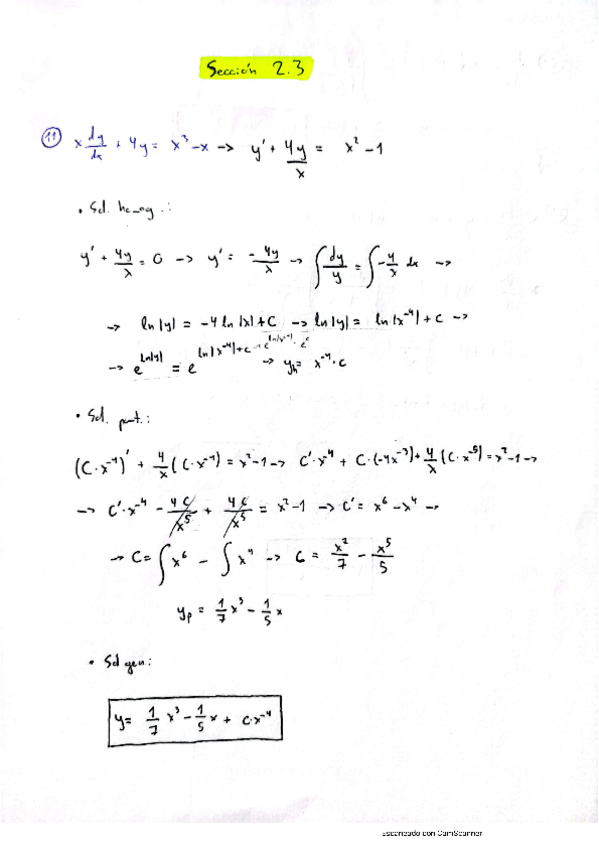 Sección 2.3
⑪ x dy/dx + 4y = x³ - x → y' + 4y/x = x² - 1
• Sol. homog.:
y' + 4y/x = 0 → y' = -4y/x → ∫ dy/y = ∫ -4/x dx →
→ ln|y| = -4 ln|x| + C → ln|y| = ln|x⁻⁴| + C →
→ e^(ln|y|) = e^(ln|x⁻⁴| + C) = e^(ln|x⁻⁴|) · e^c → yₕ = x⁻⁴ · C
• Sol. part.:
(C·x⁻⁴)' + 4/x (C·x⁻⁴) = x² - 1 → C'·x⁻⁴ + C·(-4x⁻³) + 4/x (C·x⁻⁵) = x² - 1 →
→ C'·x⁻⁴ - 4C/x⁵ + 4C/x⁵ = x² - 1 → C' = x⁶ - x⁴ →
→ C = ∫ x⁶ - ∫ x⁴ → C = x⁷/7 - x⁵/5
yₚ = 1/7 x³ - 1/5 x
• Sol gen:
y = 1/7 x³ - 1/5 x + C·x⁻⁴
Escaneado con CamScanner